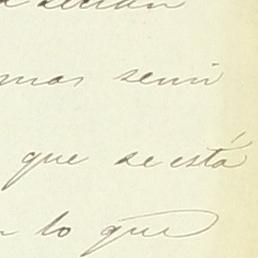 mas semi
que se está
lo que